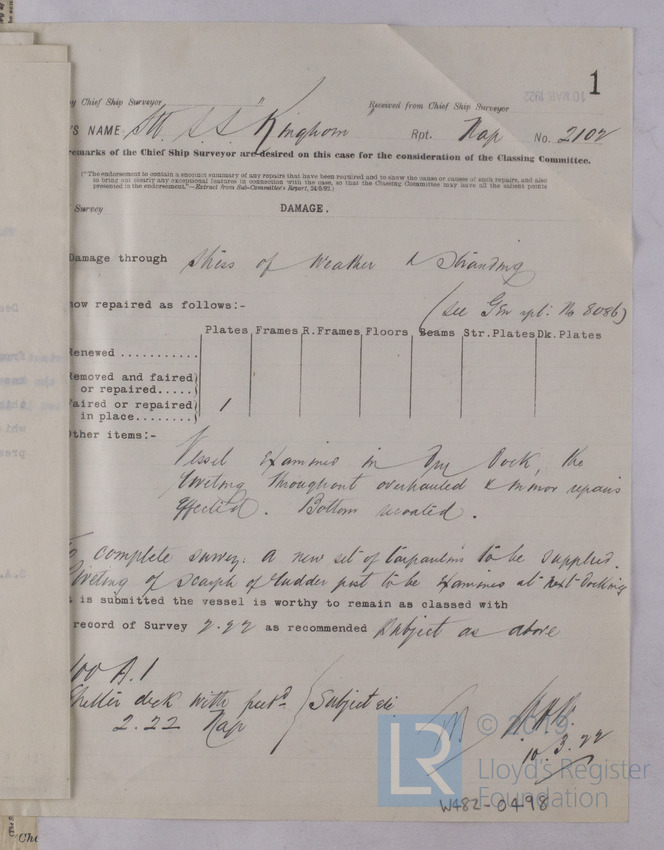 1
10 MAR 1922
by Chief Ship Surveyor
Received from Chief Ship Surveyor
'S NAME St S.S. "Kinghorn Rpt. Nap No. 2102
remarks of the Chief Ship Surveyor are desired on this case for the consideration of the Classing Committee.
("The endorsement to contain a succinct summary of any repairs that have been required and to show the cause or causes of such repairs, and also
to bring out clearly any exceptional features in connection with the case, so that the Classing Committee may have all the salient points
presented in the endorsement."—Extract from Sub-Committee's Report, 24/6/92.)
Survey
DAMAGE.
Damage through Stress of Weather & Stranding
now repaired as follows:- (see Gen rpt: No 8086)
Plates Frames R.Frames Floors Beams Str.Plates Dk.Plates
Renewed ...........
Removed and faired)
or repaired.....)
Faired or repaired) 1
in place........)
Other items:-
Vessel examined in Dry Dock, the
riveting throughout overhauled & minor repairs
effected. Bottom recoated.
To complete survey: A new set of tarpaulins to be supplied.
Riveting of scarph of rudder post to be examined at next docking
t is submitted the vessel is worthy to remain as classed with
record of Survey 2.22 as recommended Subject as above
100 A.1
Shelter deck with freebd (Subject &c
2.22 Nap
10.3.22
© 2019
LR
Lloyd's Register
Foundation
W482-0498